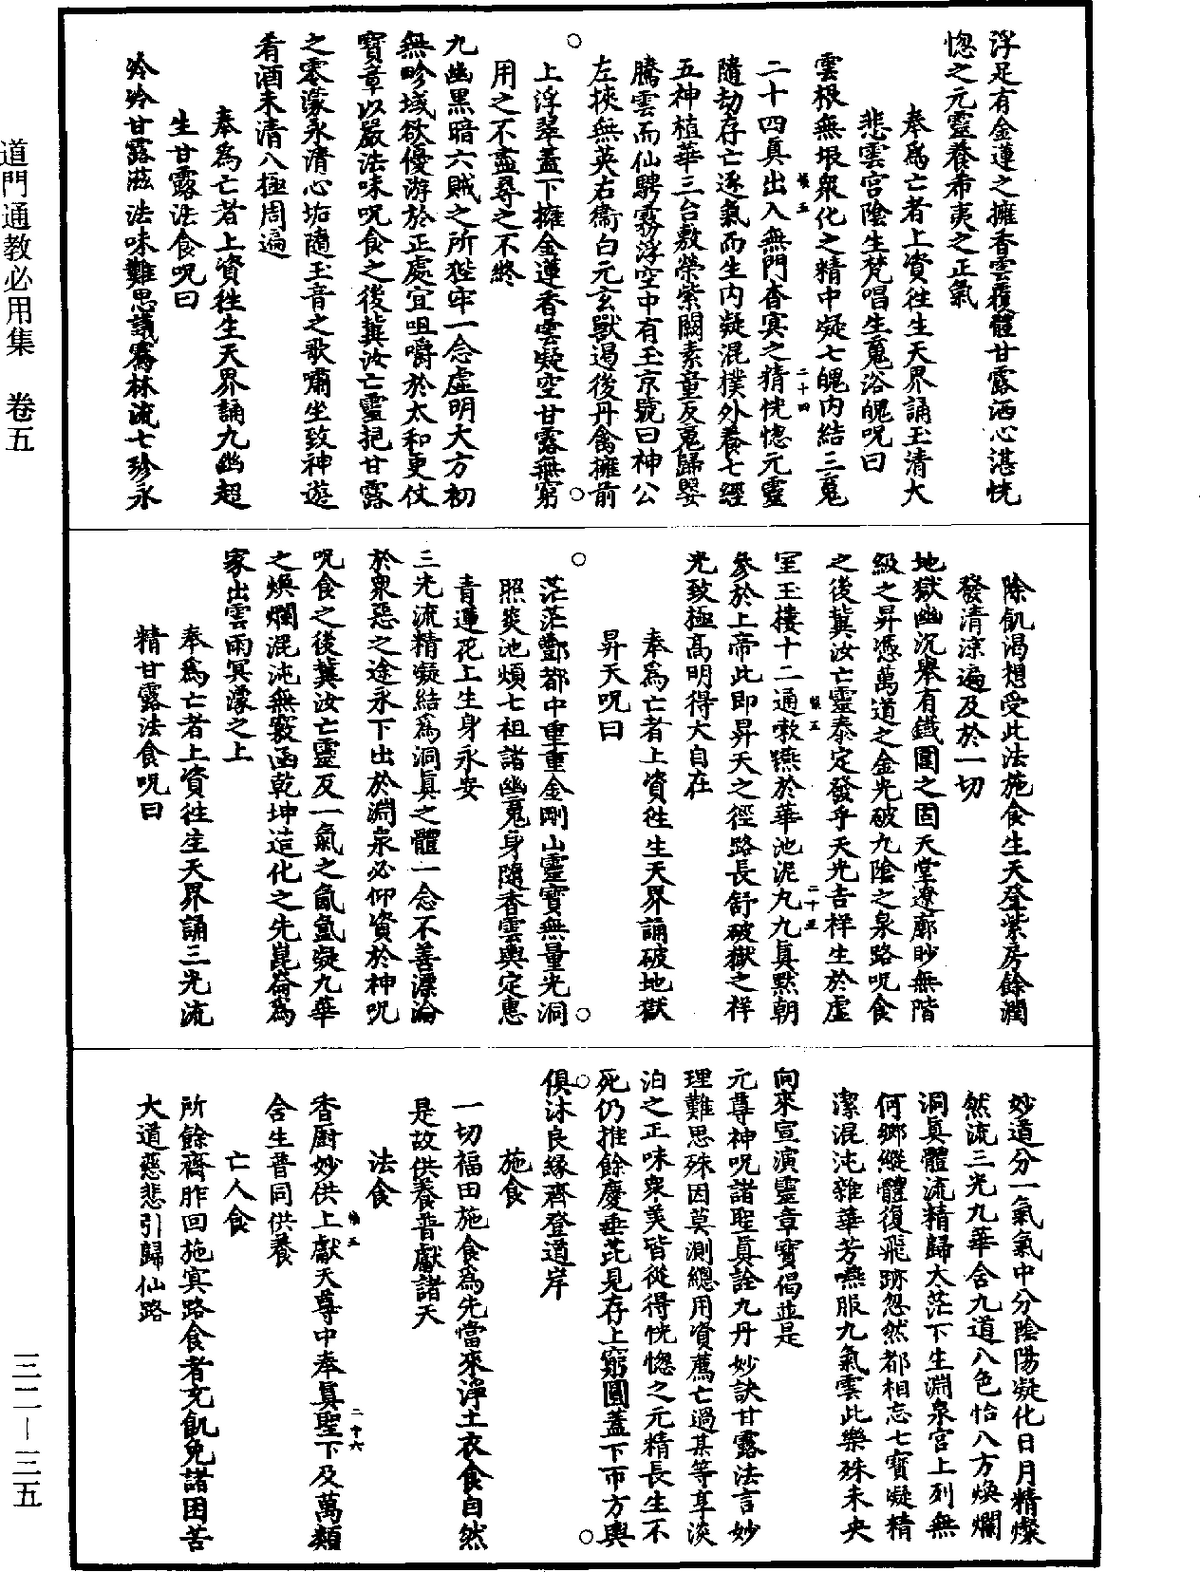 浮足有金蓮之擁香雲覆體甘露洒心湛恍
惚之元靈養希夷之正氣
奉為亡者上資徃生天界誦玉清大
悲雲宮陰生梵唱生䰟浴魄呪曰
雲根無垠衆化之精中凝七魄内結三䰟
二十四真出入無門杳冥之精恍惚元靈
隨劫存亡逐氣而生内凝混樸外養七經
五神植華三台敷榮紫闕素童反䰟歸嬰
騰雲而仙騁霧浮空中有玉京號曰神公
左挾無英右衞白元玄獸遏後丹禽擁前
上浮翠蓋下擁金蓮香雲凝空甘露無窮
用之不盡尋之不終
九幽黑暗六賊之所狴牢一念虛明大方初
無畛域欲優游於正處宜咀嚼於太和更仗
寶章以嚴法味呪食之後冀汝亡靈挹甘露
之零濛永清心垢隨玉音之歌嘯坐致神遊
肴酒未清八極周遍
奉為亡者上資徃生天界誦九幽超
生甘露法食呪曰
泠泠甘露滋法味難思議騫林流七珍永
除飢渴想受此法施食生天登紫房餘潤
發清涼遍及於一切
地獄幽沉舉有鐵圍之固天堂遼廓眇無階
級之昇憑萬道之金光破九陰之泉路呪食
之後冀汝亡靈泰定發乎天光吉祥生於虛
室玉樓十二通嗽嚥於華池泥丸九真默朝
參於上帝此即昇天之徑路長舒破獄之祥
光致極高明得大自在
奉為亡者上資徃生天界誦破地獄
昇天呪曰
茫茫酆都中重重金剛山靈寶無量光洞
照炎池煩七祖諸幽䰟身隨香雲輿定惠
青蓮花上生身永安
三光流精凝結為洞真之體一念不善漂淪
於衆惡之途永下出於淵泉必仰資於神呪
呪食之後冀汝亡靈反一氣之氤氳凝九華
之煥爛混沌無竅函乾坤造化之先崑崙為
家出雲雨冥濛之上
奉為亡者上資徃生天界誦三光流
精甘露法食呪曰
妙道分一氣氣中分陰陽凝化日月精燦
然流三光九華合九道八色怡八方煥爛
洞真體流精歸大茫下生淵泉宮上列無
何鄉縱體復飛跡忽然都相忘七寶凝精
潔混沌雜華芳嚥服九氣雲此樂殊未央
向來宣演靈章寶偈並是
元尊神呪諸聖真詮九丹妙訣甘露法言妙
理難思殊因莫測總用資薦亡過某等享淡
泊之正味衆美皆從得恍惚之元精長生不
死仍推餘慶垂芘見存上窮圓蓋下帀方輿
俱沐良緣齊登道岸
施食
一切福田施食為先當來淨土衣食自然
是故供養普獻諸天
法食
香廚妙供上獻天尊中奉真聖下及萬類
含生普同供養
亡人食
所餘齋胙回施冥路食者充飢免諸困苦
大道慈悲引歸仙路
道門通教必用集 卷五
三二—三五